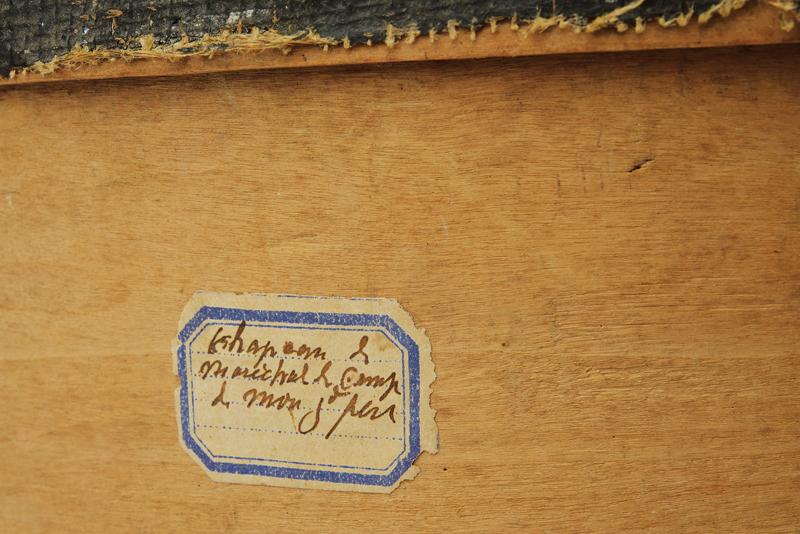 Chapeau de
Maréchal de Camp
de mon gd père